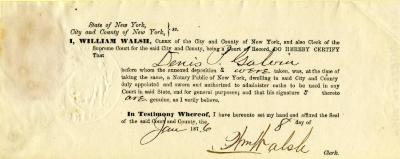 State of New York,
City and County of New York, } ss.
I, WILLIAM WALSH, CLERK of the City and County of New York, and also Clerk of the
Supreme Court for the said City and County, being a Court of Record, DO HEREBY CERTIFY
That Denis J. Galvin
before whom the annexed deposition s were taken, was, at the time of
taking the same, a Notary Public of New York, dwelling in said City and County
duly appointed and sworn and authorized to administer oaths to be used in any
Court in said State, and for general purposes; and that his signature s thereto
are genuine, as I verily believe.
In Testimony Whereof, I have hereunto set my hand and affixed the Seal
of the said Court and County, the 8 day of
Jan 1876
Wm Walsh
Clerk.